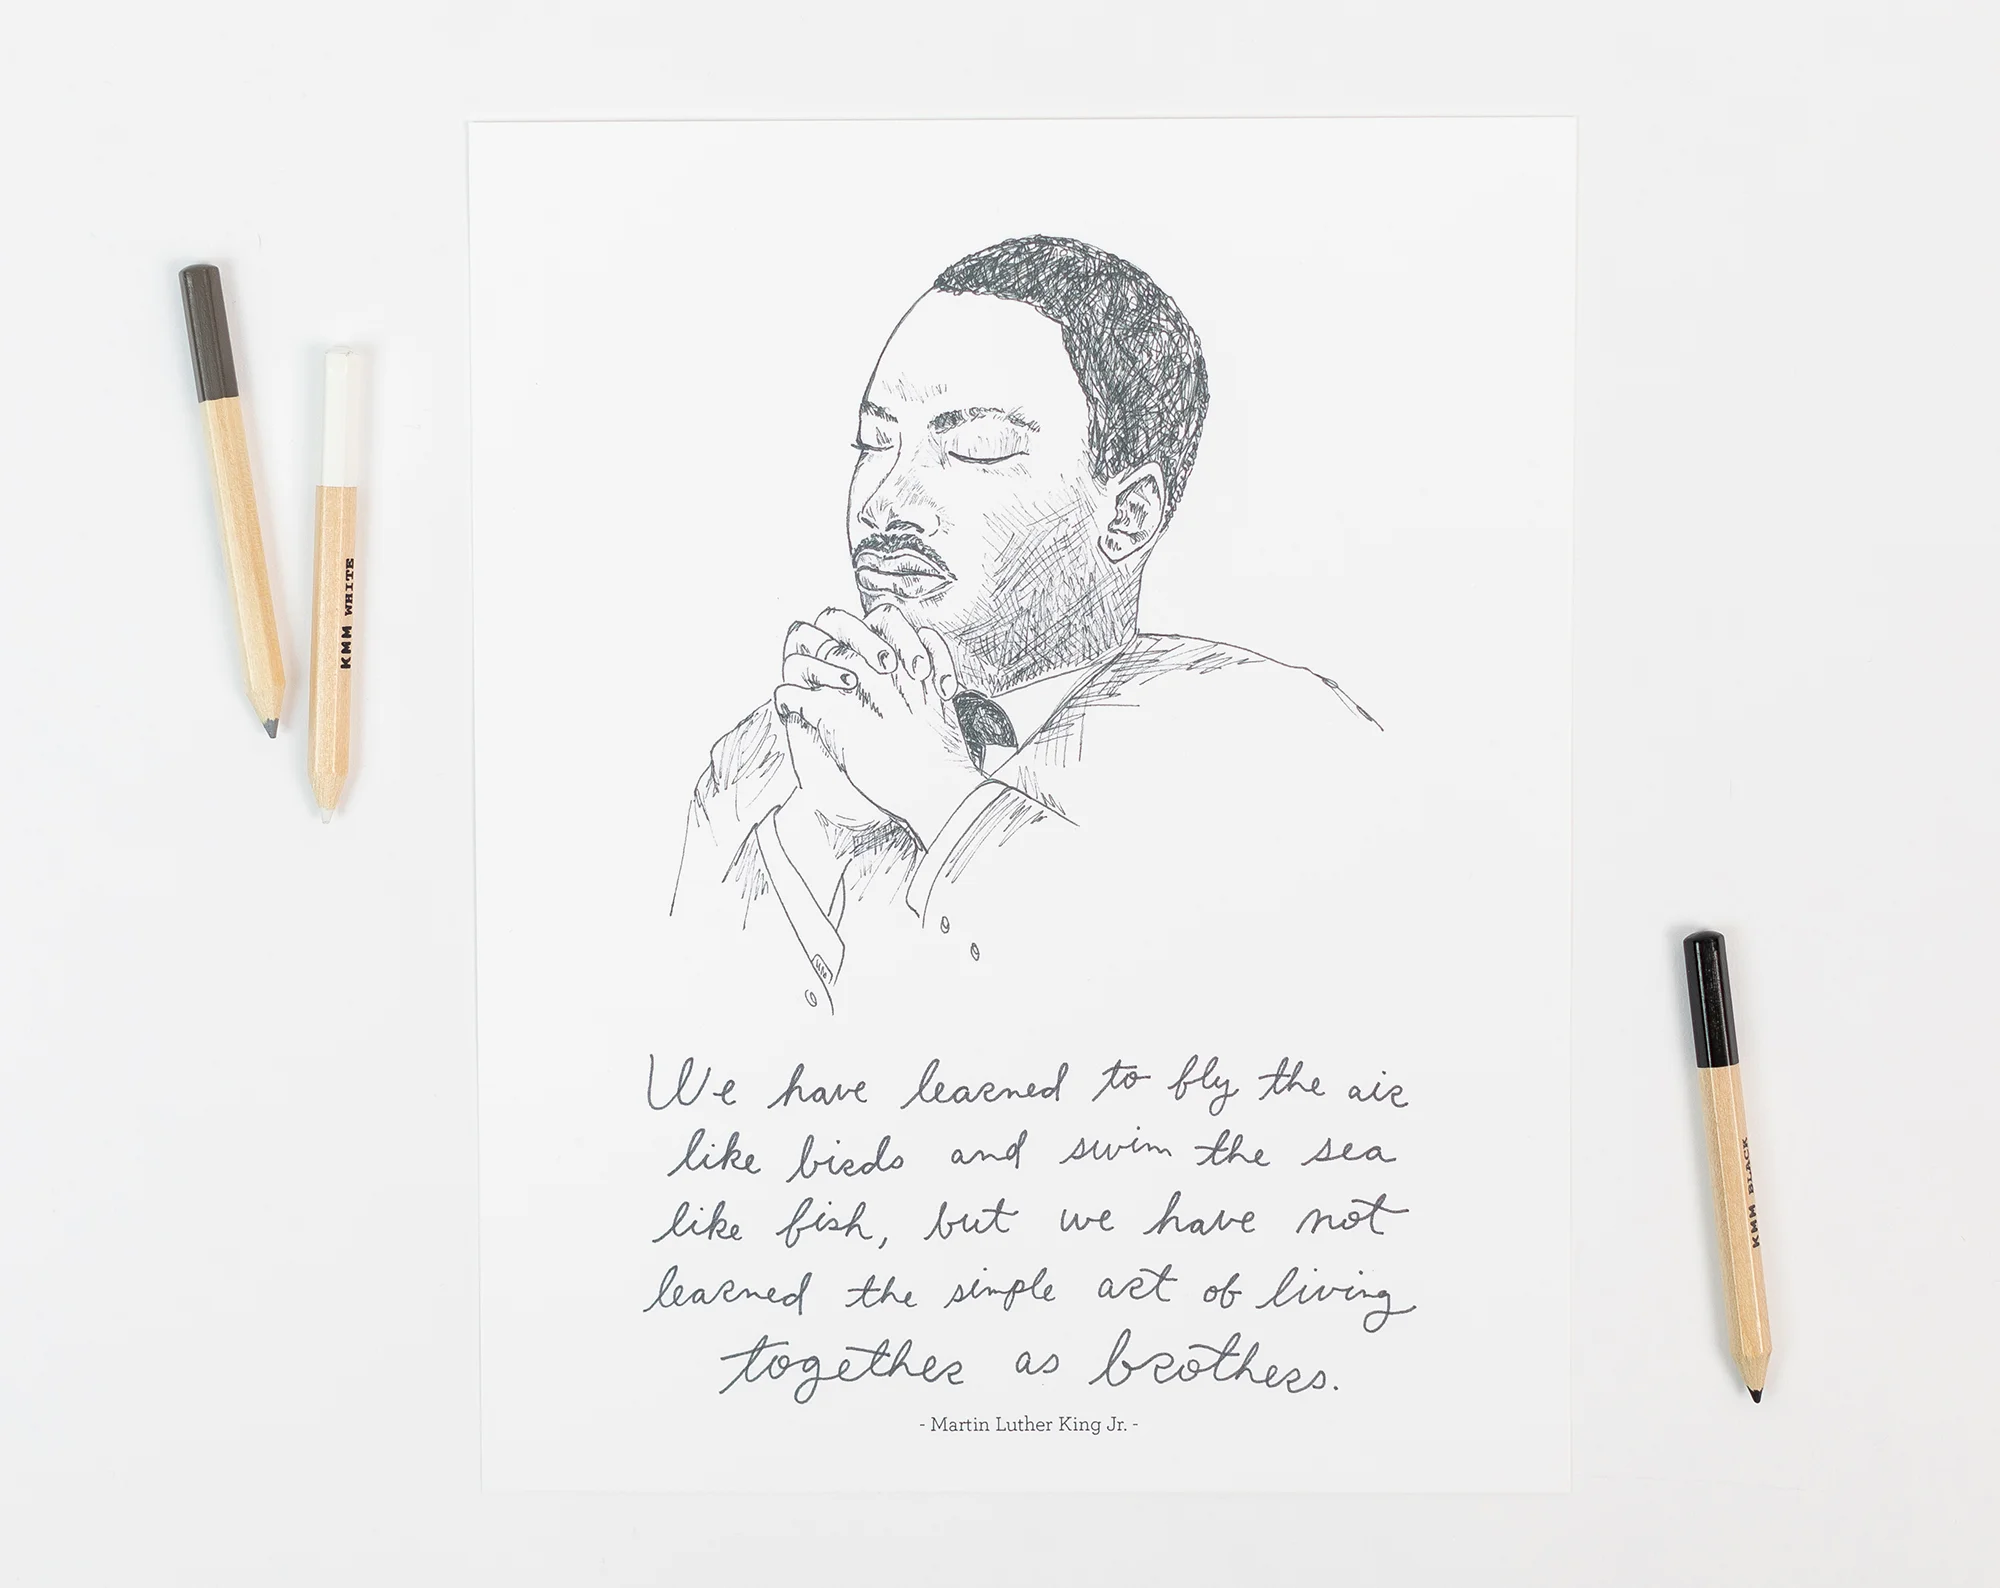 KMM WHITE
We have learned to fly the air
like birds and swim the sea
like fish, but we have not
learned the simple art of living
together as brothers.
- Martin Luther King Jr. -
KMM BLACK